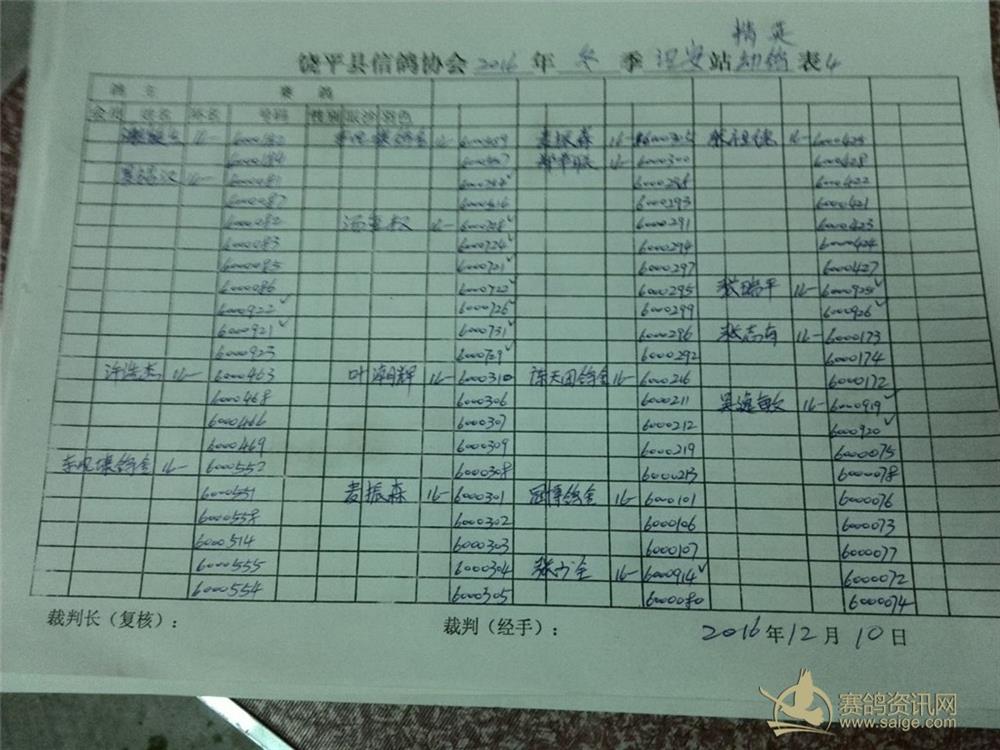 精英
饶平县信鸽协会2016年冬季诏安站幼鸽表4
鸽主 赛鸽
会员 姓名 环名 号码 性别 眼沙 羽色
16- 6000182 16- 6000459 麦振森 16- 6000305 16- 6000425
6000184 6000457 16- 6000300 6000428
16- 6000081 6000298 6000422
6000087 6000416 6000293 6000421
6000082 16- 6000728✓ 6000291 6000423
6000083 6000724✓ 6000294 6000424
6000085 6000721✓ 6000297 6000427
6000086 6000722✓ 6000295 张瑞平 16- 6000925✓
6000922✓ 6000726✓ 6000299 6000926✓
6000921✓ 6000731✓ 6000296 张志南 16- 6000173
6000923 6000729✓ 6000292 6000174
许浩杰 16- 6000463 叶湖辉 16- 6000310 陈天团鸽舍 16- 6000216 6000172
6000468 6000306 6000211 吴逸敏 16- 6000919✓
6000466 6000307 6000212 6000920✓
6000469 6000309 6000219 6000075
16- 6000552 6000308 6000213 6000078
6000551 麦振森 16- 6000301 冠博鸽舍 16- 6000101 6000076
6000558 6000302 6000106 6000073
6000514 6000303 6000107 6000077
6000555 6000304 16- 6000914✓ 6000072
6000554 6000305 6000080 6000074
裁判长（复核）： 裁判（经手）： 2016年12月10日
赛鸽资讯网
www.saige.com